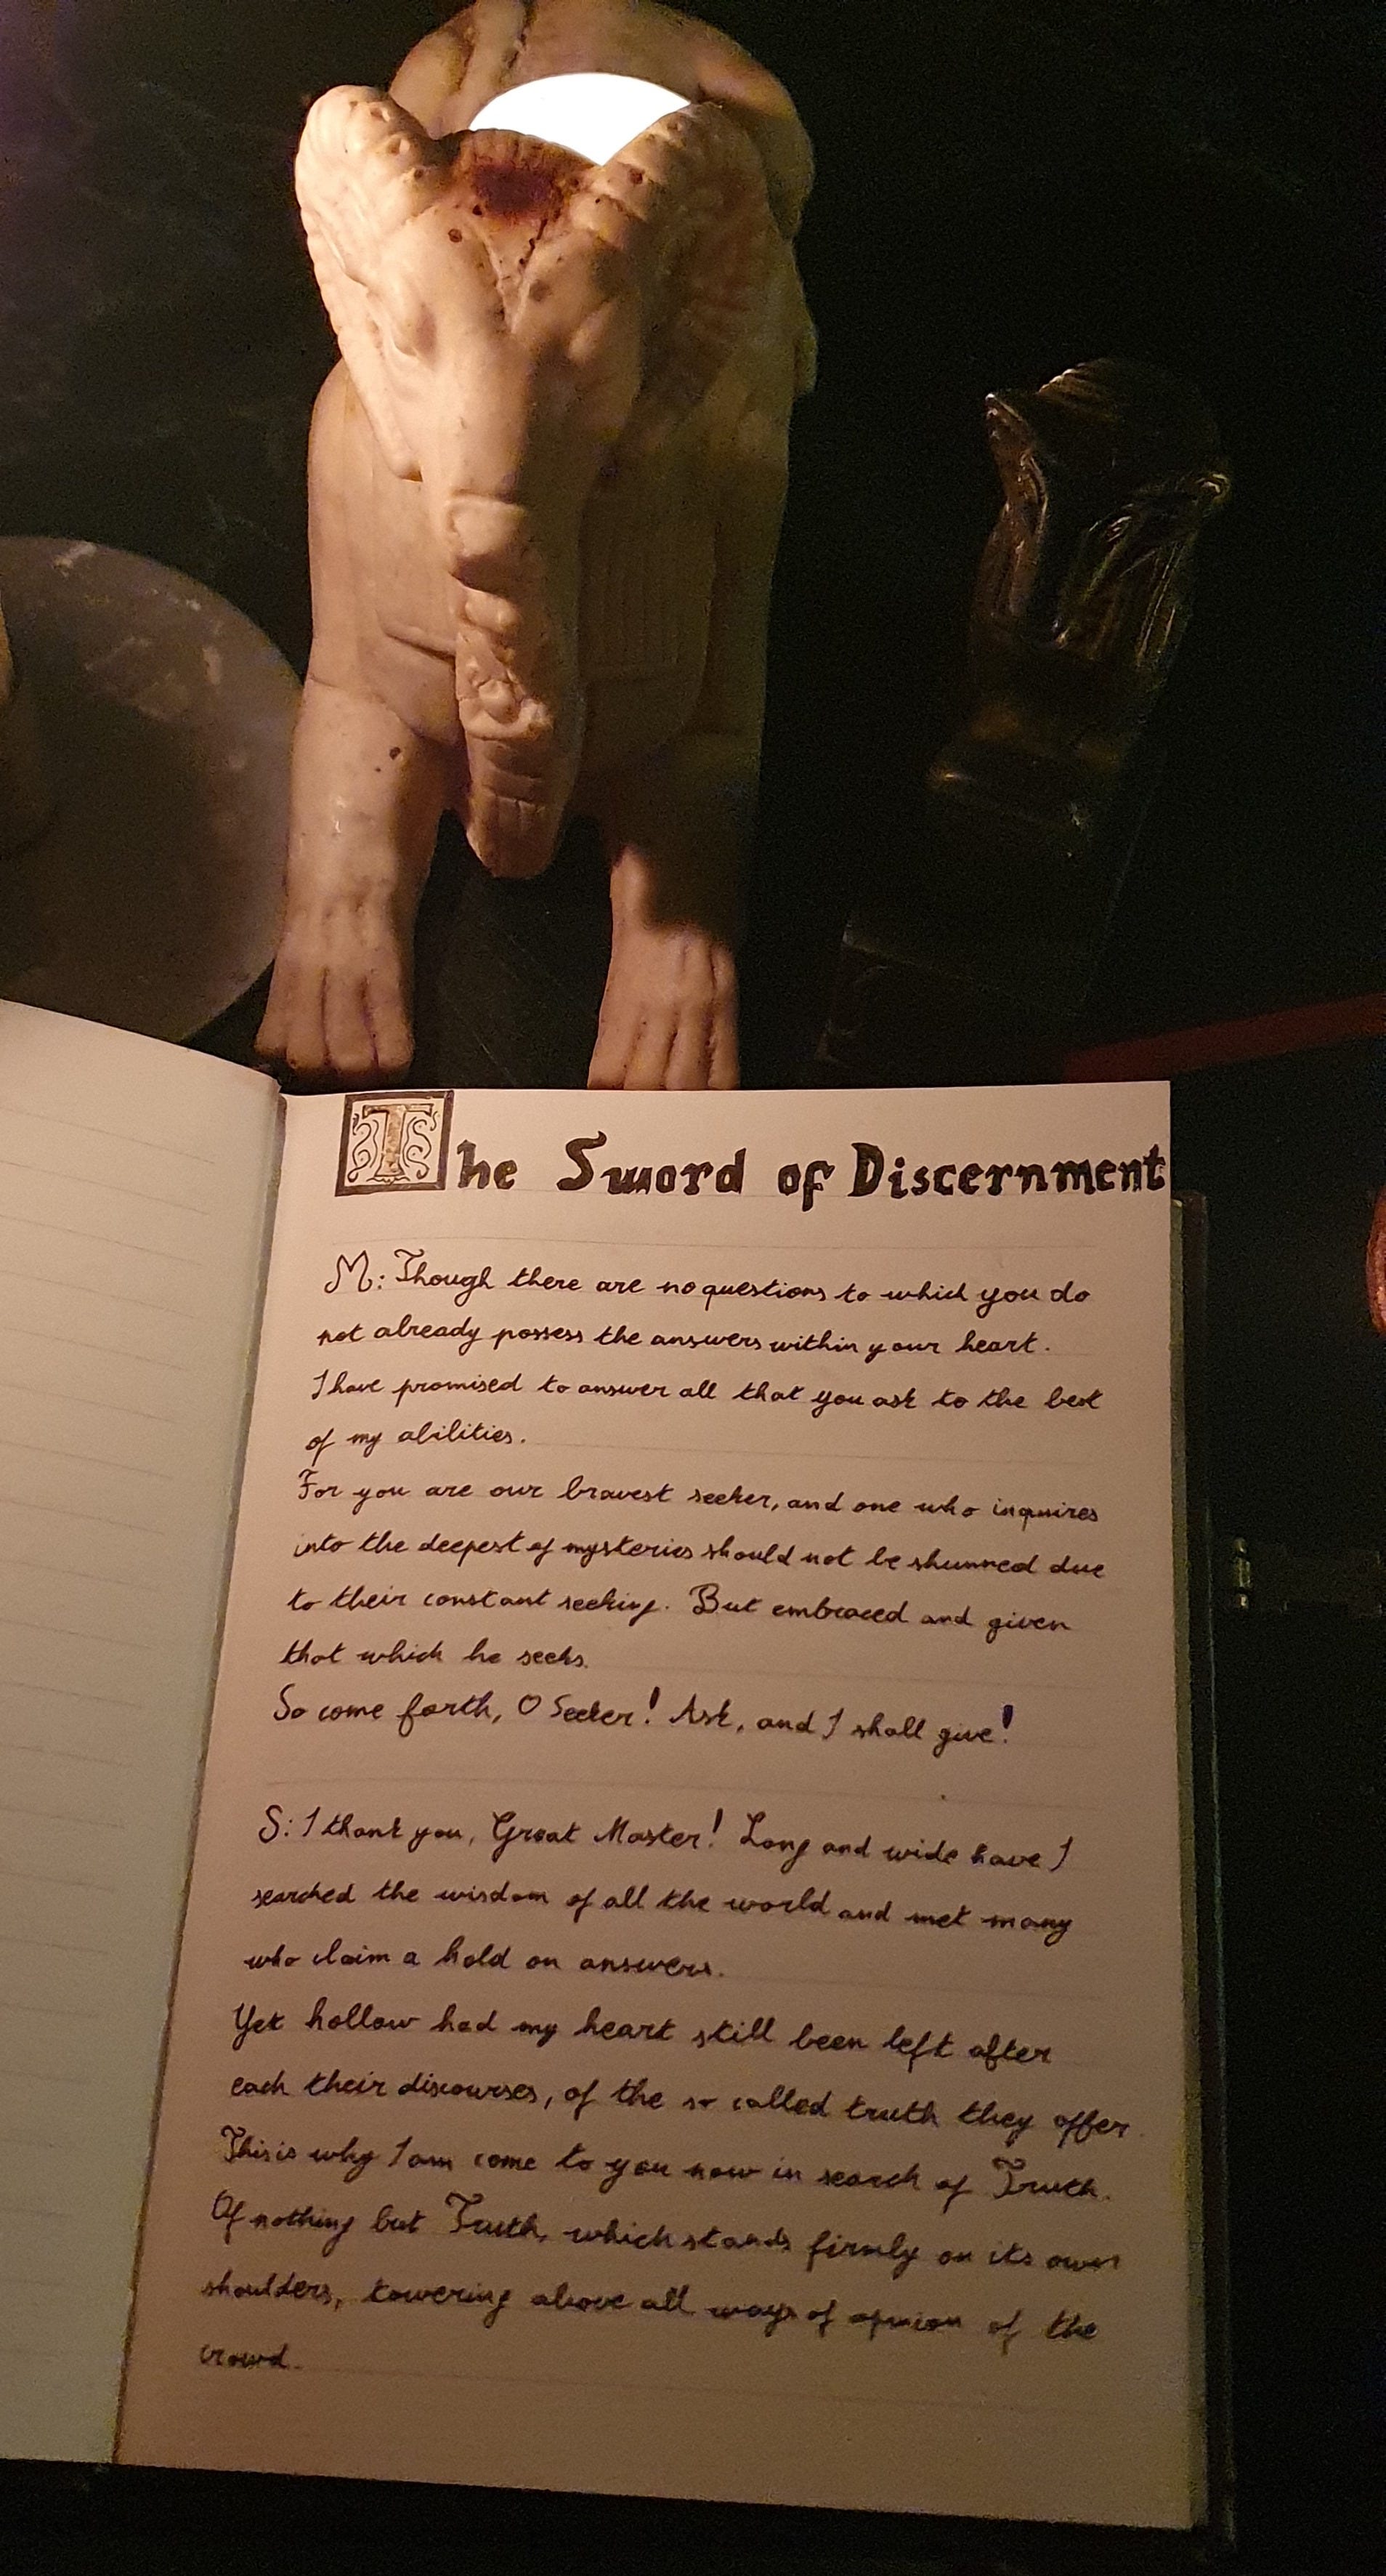 The Sword of Discernment
M: Though there are no questions to which you do
not already possess the answers within your heart.
I have promised to answer all that you ask to the best
of my abilities.
For you are our bravest seeker, and one who inquires
into the deepest of mysteries should not be shunned due
to their constant seeking. But embraced and given
that which he seeks.
So come forth, O Seeker! Ask, and I shall give!
S: I thank you, Great Master! Long and wide have I
searched the wisdom of all the world and met many
who claim a hold on answers.
Yet hollow had my heart still been left after
each their discourses, of the so called truth they offer.
This is why I am come to you now in search of Truth.
Of nothing but Truth, which stands firmly on its own
shoulders, towering above all ways of opinion of the
crowd.